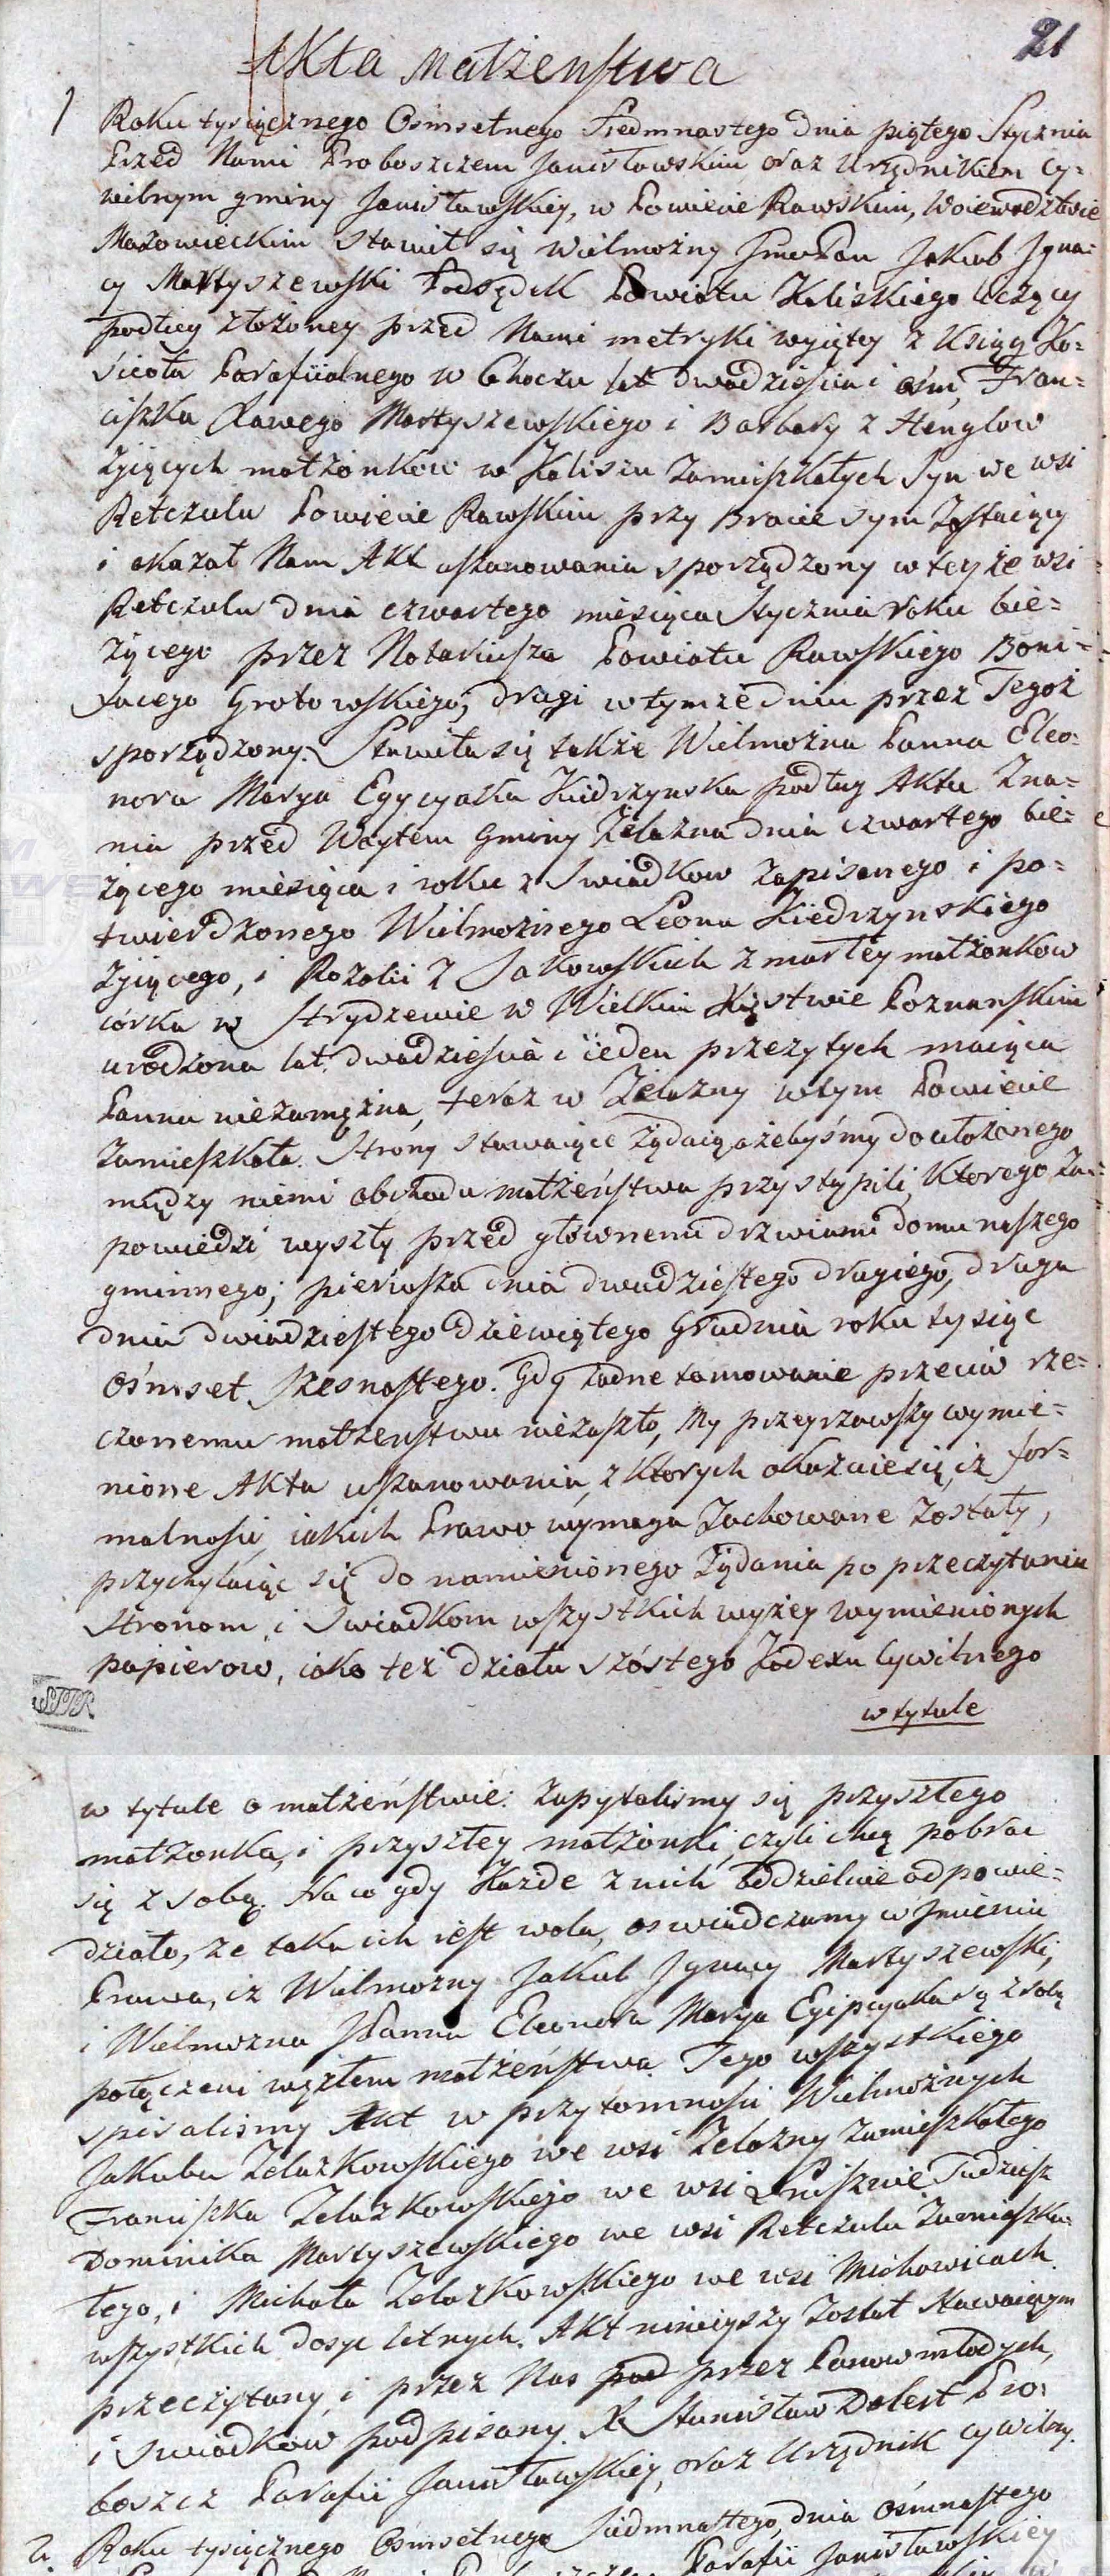 21
Akta Małżenſtwa
1 Roku tysiącznego Osmsetnego Siedmnastego dnia piątego Stycznia
Przed Nami Proboszczem Janisławskim oraz Urzędnikiem Cy=
wilnym gminy Janisławſkiey, w Powiecie Rawskim, Woiewodztwie
Mazowieckim stawił się Wielmożny JmcPan Jakub Igna=
cy Martyszewſki Podsędek Powiatu Kaliskiego liczący
podług złożoney przed Nami metryki wyiętey z Księgi Ko=
ścioła Parafiialnego w Choczu lat dwadzieścia i ośm, Fran=
ciſzka Xawego Martyszewſkiego i Barbary z Henglow
Zyiących małżonkow w Kaliszu zamieſzkałych Syn we wsi
Retczulu Powiecie Rawſkim przy Bracie sym Zoſtaiący
i okazał Nam Akt uſzanowania sporządzony w teyże wsi
Retczulu dnia czwartego miesiąca Stycznia roku bie=
żącego przez Notariuſza Powiatu Rawſkiego Boni=
facego Grotowſkiego; drugi w tymże dniu przez Tegoż
sporządzony. Stawiła się także Wielmożna Panna Eleo=
nora Marya Egycyaka Kiedrzynska podług Aktu Zna=
nia przed Woytem Gminy Żelazna dnia czwartego bie=
żącego miesiąca i roku z Swiadkow zapisanego i po=
twierdzonego Wielmożnego Leona Kiedrzynskiego
Zyiącego, i Rozalii z Sakowſkich zmarłey małżonkow
córka w Strydzewie w Wielkim Xięstwie Poznanſkim
urodzona lat dwadzieścia i ieden przeżytych maiąca
Panna niezamężna, teraz w Żelazny w tym Powiecie
Zamieſzkała. Strony stawaiące żądaią ażebyśmy do ułożonego
między niemi obchodu małżeńſtwa przystąpili, Ktorego Za=
powiedzi wyszły przed głównemi drzwiami domu naſzego
gminnego; pierwſza dnia dwudzieſtego drugiego, druga
dnia dwudzieſtego dziewiątego Grudnia roku tysiąc
ośmset ſzesnaſtego. Gdy żadne tamowanie przeciw rze=
czonemu małżenſtwu niezaſzło, My przeyrzawſzy wymie=
nione Akta uſzanowania, z ktorych okazuie się, iż for=
malności, iakich Prawo wymaga Zachowane Zostały,
przychylaiąc się do namienionego Żądania po przeczytaniu
Stronom, i Swiadkom wſzystkich wyżey wymienionych
papierow, iako też działu szóstego Kodexu Cywilnego
w tytule
w tytule o małżeńſtwie: Zapytalismy się przyszłego
małżonka, i przyszłey małżonki, czyli chcą pobrać
się z sobą. Na co gdy Każde z nich oddzielnie odpowie=
działo, że taka ich ieſt wola, oswiadczamy w Jmieniu
Prawa, iż Wielmożny Jakub Ignacy Martyszewſki,
i Wielmożna Panna Eleonora Marya Egipcyaka są z sobą
połączeni węzłem małżeńſtwa. Tego wſzystkiego
spisalismy Akt w przytomności Wielmożnych
Jakuba Zelazkowſkiego we wsi Żelazny Zamieſzkałego
Franciſzka Zelazkowſkiego we wsi Tudzieſz
Dominika Martyszewſkiego we wsi Retczulu Zamieſzka=
łego, i Michała Zelazkowſkiego we wsi Michowicach
wſzystkich dosyć letnych. Akt ninieyszy Został Stawaiącym
przeczytany, i przez Nas przez Panow młodych,
i Swiadkow podpisany. X Stanisław Dolest Pro=
boszcz Parafii Janisławſkiey, oraz Urzędnik Cywilny.
2. Roku tysiącznego Osmsetnego Siedmnaſtego, dnia ośmnaſtego
Parafii Janisławſkiey